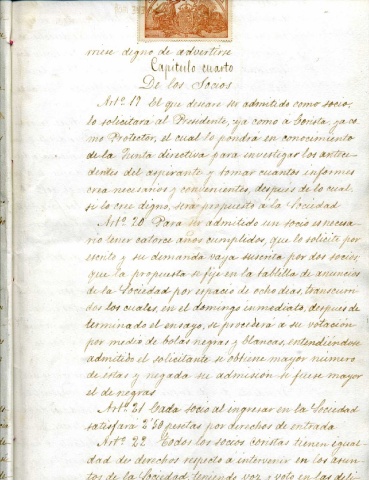 rriese digno de advertirse
Capítulo cuarto
De los Socios
Artº 17 El que desare ser admitido como socio,
lo solicitará al Presidente, ya como a Corista, ya co-
mo Protector, el cual lo pondrá en conocimiento
de la Junta directiva para investigar los antece-
dentes del aspirante y tomar cuantos informes
crea necesarios y convenientes, despues de lo cual
si lo cree digno, será propuesto á la Sociedad
Artº 20 Para ser admitido un socio es necesa-
rio tener catorce años cumplidos, que lo solicite por
escrito y su demanda vaya suscrita por dos socios,
que la propuesta se fije en la tablilla de anuncios
de la Sociedad por espacio de ocho dias, transcurri-
dos los cuales, en el domingo inmediato, despues de
terminado el ensayo, se procederá a su votación
por medio de bolas negras y blancas, entendiéndose
admitido el solicitante si obtiene mayor número
de estas y negada su admisión si fuese mayor
el de negras
Artº 21 Cada socio al ingresar en la Sociedad
satisfará 2'50 pesetas por derechos de entrada
Artº 22 Todos los socios coristas tienen igual-
dad de derechos respecto a intervenir en los asun-
tos de la Sociedad, teniendo voz y voto en las deli-